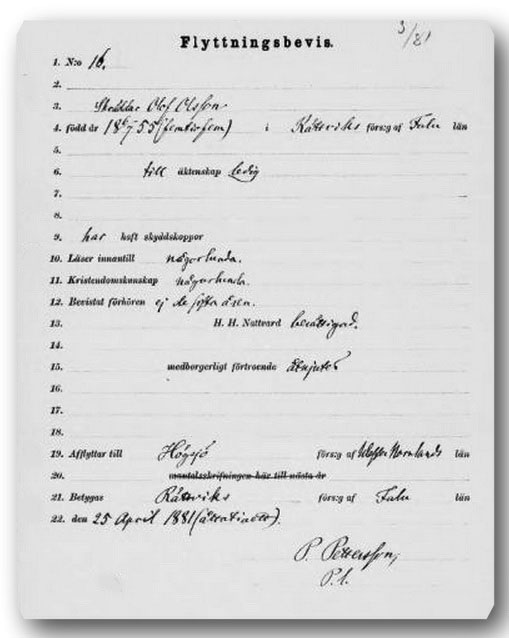 3/81
Flyttningsbevis.
1. N:o 16.
2.
3. Skräddar Olof Olsson
4. född år 18 6/7 55 (femtiofem) i Rättviks förs:g af Falu län
5.
6. till äktenskap ledig
7.
8.
9. har haft skyddskoppor
10. Läser innantill någorlunda.
11. Kristendomskunskap någorlunda.
12. Bevistat förhören ej de sista åren.
13. H. H. Nattvard berättigad.
14.
15. medborgerligt förtroende åtnjuter
16.
17.
18.
19. Afflyttar till Högsjö förs:g af Wester Norrlands län
20. mantalsskrifningen här till nästa år
21. Betygas Rättviks förs:g af Falu län
22. den 25 April 1881 (åttatioett).
P. Pettersson,